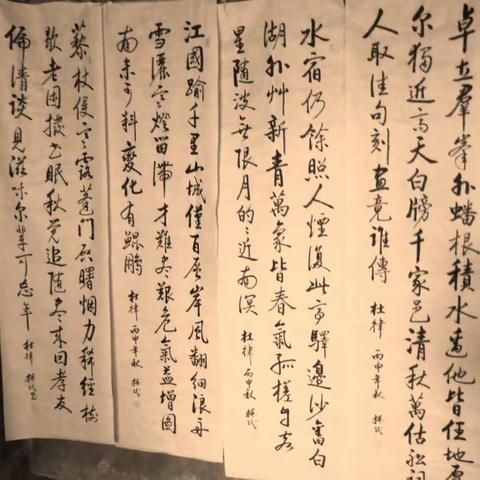 卓立群峯外蟠根積水邊他皆任地厚
尔獨近高天白牓千家邑清秋萬估船詞
人取佳句刻畫竟誰傳
杜律 丙申年秋
水宿仍餘照人煙復此亭驛邊沙舊白
湖外草新青萬象皆春氣孤槎自客
星隨波無限月的的近南溟
杜律 丙申秋
江國踰千里山城僅百層岸風翻細浪舟
雪灑寒燈留滯才難盡艱危氣益增圖
南未可料變化有鯤鵬
杜律 丙申年秋
藜杖侵寒露蓬門啟曙烟力稀經樹
歇老困撥書眠秋覺追隨盡来因孝友
偏清談見滋味尔輩可忘年
杜律